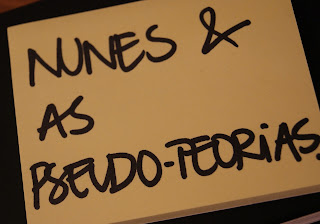 NUNES &
AS
PSEUDO-TEORiAS.